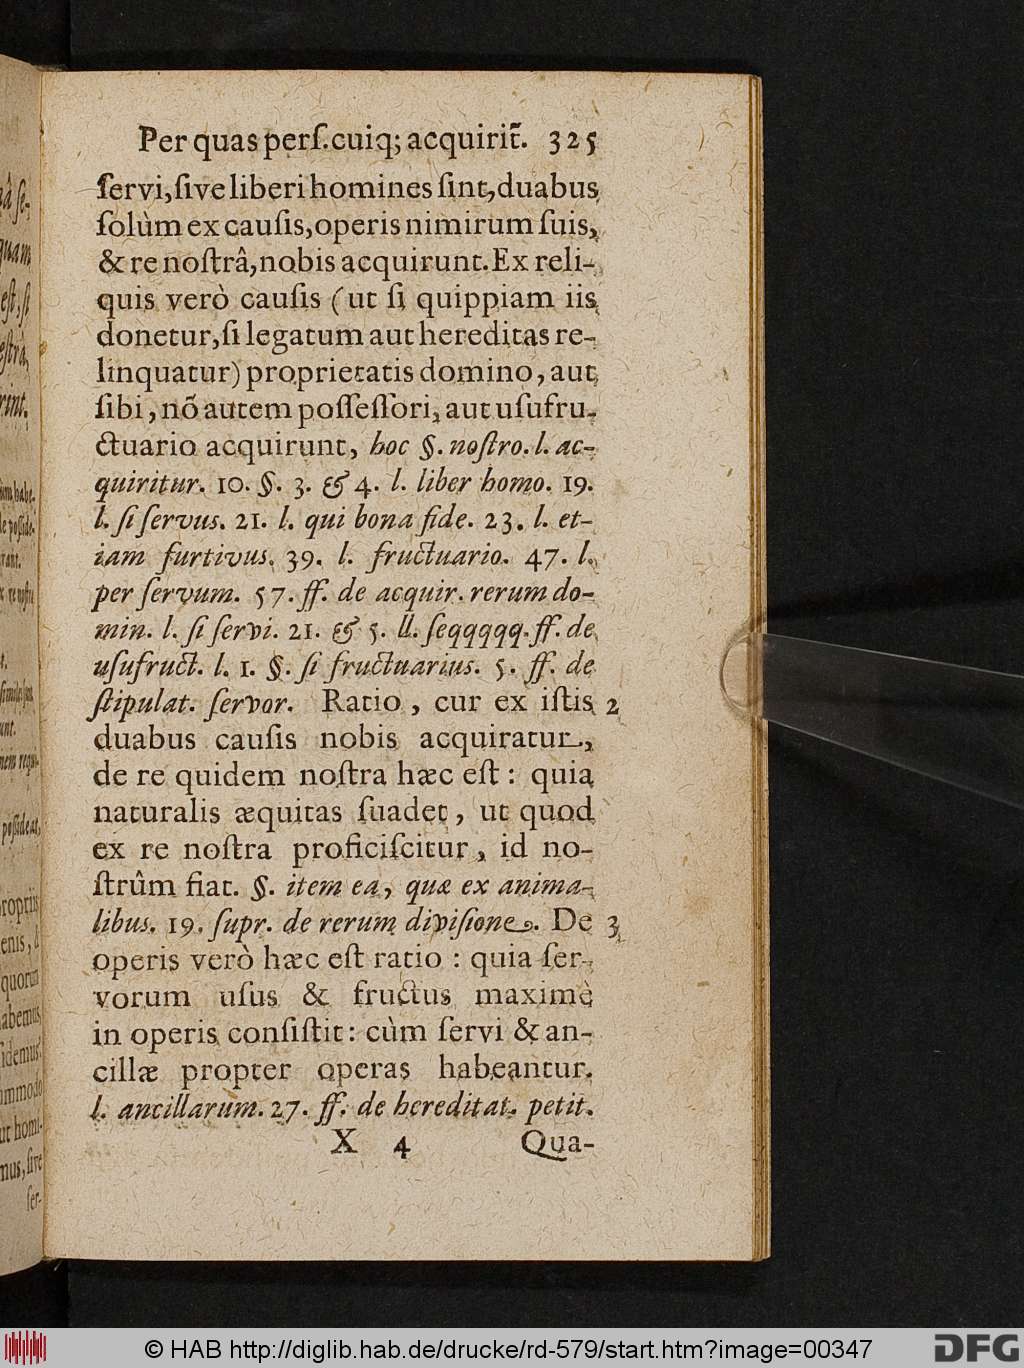 Per quas perſ. cuiq; acquirit̃. 325
ſervi, ſive liberi homines ſint, duabus
ſolùm ex cauſis, operis nimirum ſuis,
& re noſtrâ, nobis acquirunt. Ex reli-
quis verò cauſis (ut ſi quippiam iis
donetur, ſi legatum aut hereditas re-
linquatur) proprietatis domino, aut
ſibi, nõ autem poſſeſſori, aut uſufru-
ctuario acquirunt, hoc §. noſtro. l. ac-
quiritur. 10. §. 3. & 4. l. liber homo. 19.
l. ſi ſervus. 21. l. qui bona fide. 23. l. et-
iam furtivus. 39. l. fructuario. 47. l.
per ſervum. 57. ff. de acquir. rerum do-
min. l. ſi ſervi. 21. & 5. ll. ſeqqqqq. ff. de
uſufruct. l. 1. §. ſi fructuarius. 5. ff. de
ſtipulat. ſervor. Ratio, cur ex iſtis 2
duabus cauſis nobis acquiratur,
de re quidem noſtra hæc eſt: quia
naturalis æquitas ſuadet, ut quod
ex re noſtra proficiſcitur, id no-
ſtrûm fiat. §. item ea, quæ ex anima-
libus. 19. ſupr. de rerum diviſione. De 3
operis verò hæc eſt ratio: quia ſer-
vorum uſus & fructus maximè
in operis conſiſtit: cùm ſervi & an-
cillæ propter operas habeantur.
l. ancillarum. 27. ff. de hereditat. petit.
X 4 Qua-
© HAB http://diglib.hab.de/drucke/rd-579/start.htm?image=00347
DFG